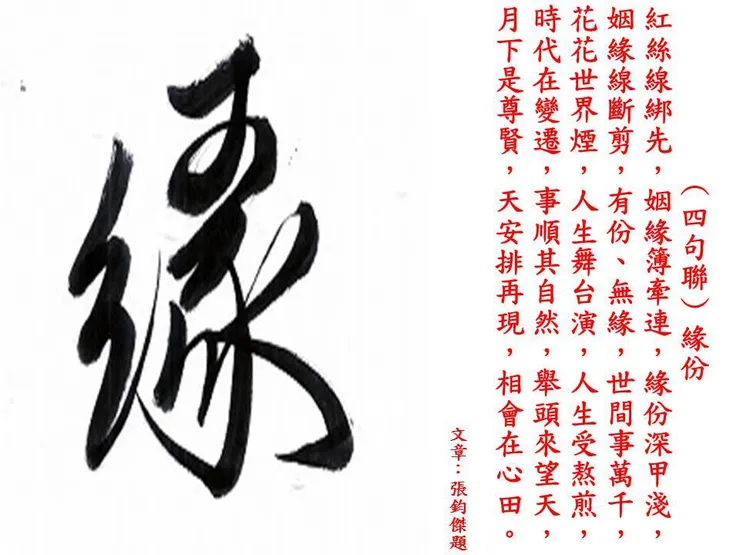 緣
（四句聯）緣份
紅絲線綁先，姻緣簿牽連，緣份深甲淺，
姻緣線斷剪，有份、無緣，世間事萬千，
花花世界煙，人生舞台演，人生受熬煎，
時代在變遷，事順其自然，舉頭來望天，
月下是尊賢，天安排再現，相會在心田。
文章：張鈞傑題